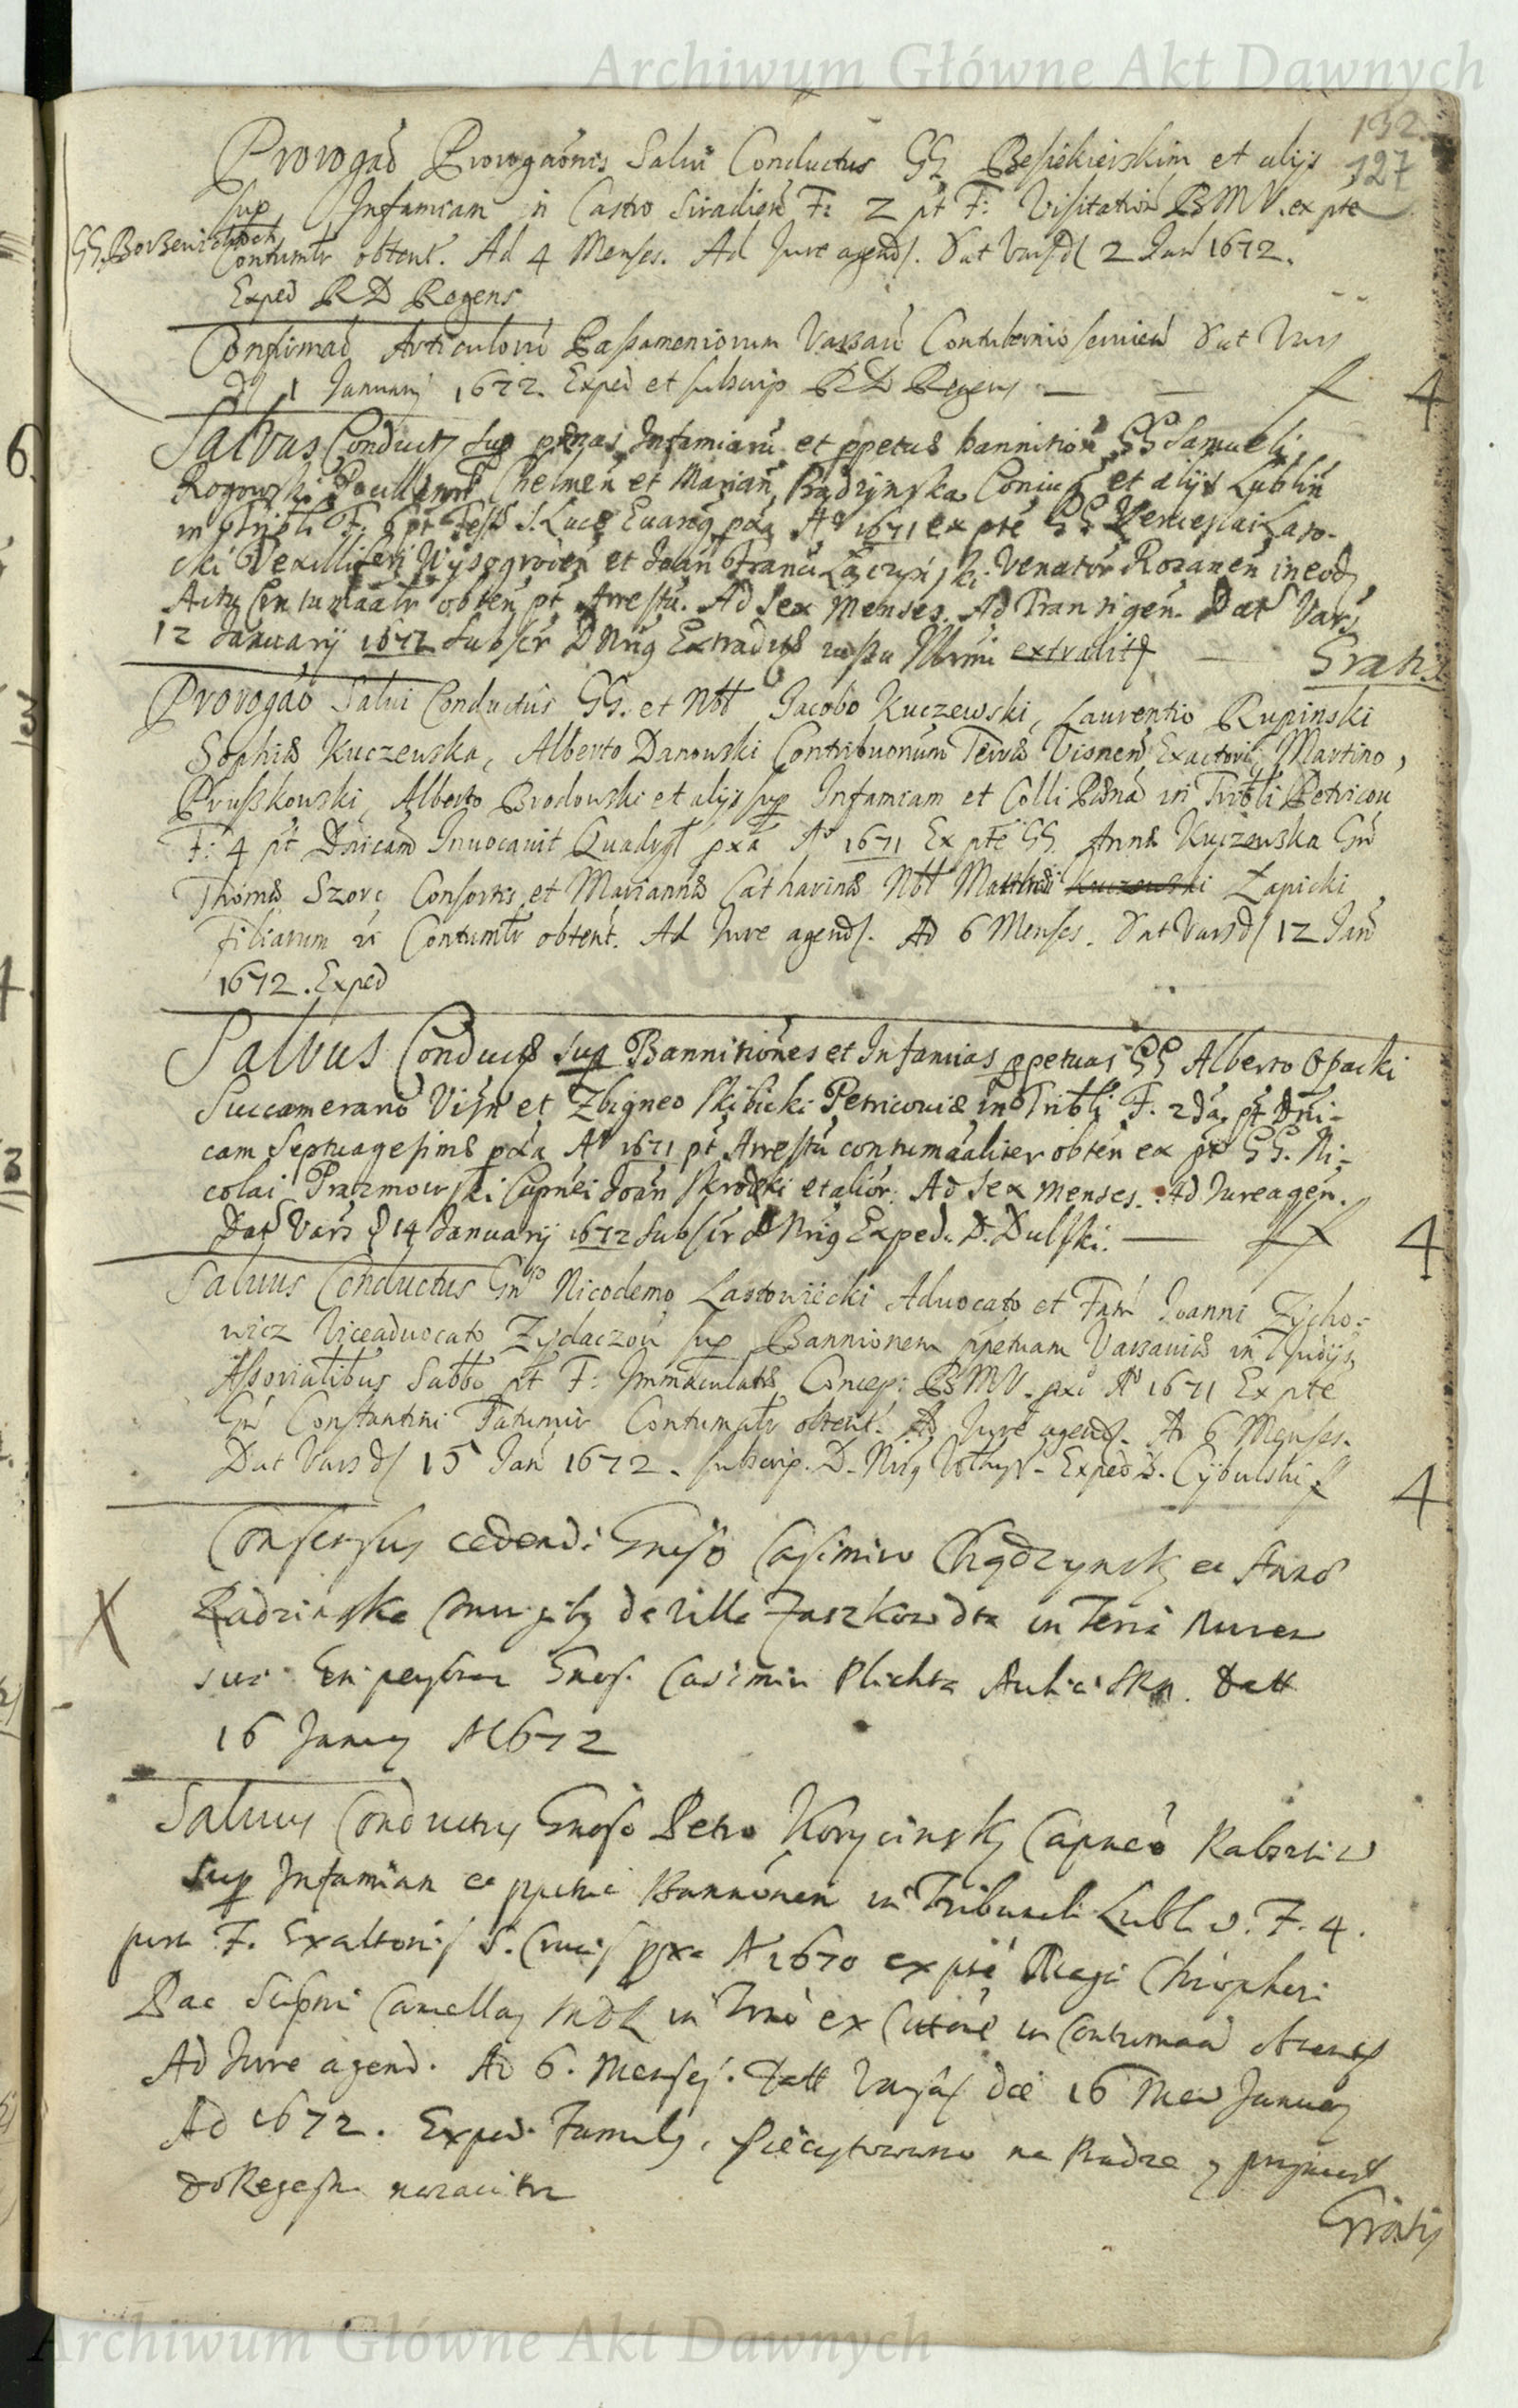 Archiwum Główne Akt Dawnych
132.
127
Prorogaõ Prorogaõnis Salvi Conductus GG. Besiekierskim et alijs
sup Infamiam in Castro Siradien F: 2 pt F: Visitatioñ BMV. ex pte
GG. Borzewickich
Contumlr obtent. Ad 4 Menses. Ad Jure agend. Dat Vars d 2 Jan 1672.
Exped RD Regens
Confirmaõ Articulorũ Passameniorum Varsavi Contubernio servien Dat Vars
D 1 Januarij 1672. Exped et subscrip RD Regens — — f 4
Salvus Conduct9 sup pænas Infamiarũ et ppetuæ bannitioñ GG Samueli
Rogowski Pocillat Chelmeñ et Mariañ Bądzynska Coniug et alijs Lublin
in Tribli F: 6 pt Fest S. Lucæ Euang pxa Aº 1671 ex pte GG Venceslai Laso-
cki Vexilliferi Wysogrodeñ et Joañ Franc Łączynski Venatõr Rozaneñ in eod
Actu Contumaalr obteñ pt Arrestũ. Ad sex Menses. Ad Transigeñ. Dat Vars
12 Januarij 1672 Subscr D Nrig Extradit9 iussu Illrmi extradit9 — Gratis
Prorogaõ Salvi Conductus GG. et Nbl Jacobo Kuczewski, Laurentio Rupinski
Sophiæ Kuczewska, Alberto Danowski Contribuonum Terræ Visneñ Exactori, Martino,
Pruszkowski, Alberto Brodowski et alijs sup Infamiam et Colli Pænã in Tribli Petricou
F: 4 pt Dnicam Invocavit Quadrgl pxa Aº 1671 Ex pte GG. Annæ Kuczewska Gñ
Thomæ Szorc Consortis et Mariannæ Catharinæ Nbl Matthæi Kuczewski Łapicki
filiarum in Contumlr obtent. Ad Jure agend. Ad 6 Menses. Dat Vars d 12 Jan
1672. Exped
Salvus Conduct9 sup Bannitiones et Infamias ppetuas GG Alberto Opacki
Succamerario Visñ et Zbigneo Skibicki Petricoviæ in Tribli F. 2da pt Dni-
cam Septuagesimæ pxa Aº 1671 pt Arrestũ contumaaliter obteñ ex pte GG. Ni-
colai Prazmowski Capnei Joañ Skrodzki et alior. Ad sex menses. Ad Jure ageñ.
Dat Vars d 14 Januarij 1672 Subscr D Nrig Exped. D. Dulski. — ff 4
Salvus Conductus Gñso Nicodemo Lastowiecki Advocato et Fam Joanni Zycho-
wicz Viceadvocato Zydaczoũ sup Bannionem ppetuam Varsaviæ in Judijs
Assorialibus Sabbo pt F: Immaculatæ Concep: BMV. pxo Aº 1671 Ex pte
Gñi Constantini Contumalr obtent. Ad Jure agend. Ad 6 Menses.
Dat Vars d 15 Jan 1672. subscrip. D. Nrig Exped D. Cybulski f 4
Consensus cedendi Gneso Casimiro Chądzynsk et Annæ
X Radzinska Coniugib9 de Villa Zaszkow dta in Terra Nuren
sita Gnes. Casimiri Plichta Datt
16 Januarij A 1672
Salvus Conductus Gnoso Petro Korycinsky Capneo Rabsztin
Sup Infamian et ppetua Bannõnem in Tribunali Lubl. F. 4.
post F. Exaltonis S. Crucis pxa A 1670 ex pte Christopheri
Pac Supmi Cancellarij MDL in Contumaciã obtent
Ad Jure agend. Ad 6. Menses. Datt Vars die 16 Men Januarij
AD 1672. Exped. Pieczętowano na Radze y
do Regestru
Gratis
Archiwum Główne Akt Dawnych